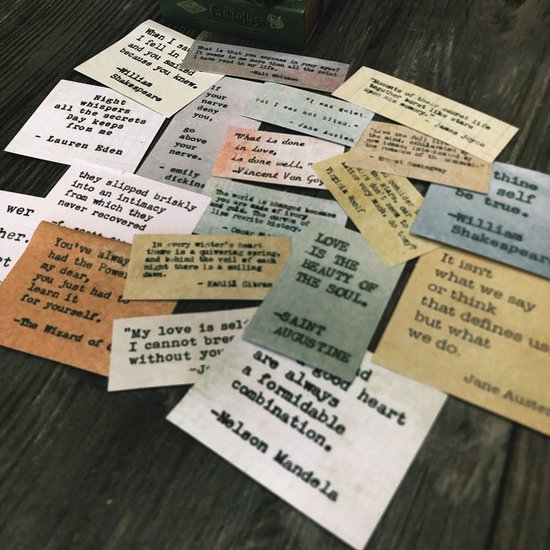 The
When I sa
I fell in
and you smiled
because you knew.
-William
Shakespeare
What is that you express in your eyes?
It seems to me more than all the print
I have read in my life.
-Walt Whitman
Night
whispers
all the secrets
Day keeps
from me
- Lauren Eden
If
your
nerve
deny
you,
go
above
your
nerve.
emily
dickins
"I was quiet,
but I was not blind."
Jane Austen
"Moments of their secret life
together burst like stars
upon his memory."
-James Joyce
What is done
in love,
is done well."
-Vincent Van Gog
"Live the full life
ideas
-Ernest Hemingway
thine
self
be true.
-William
Shakespeare
they slipped briskly
into an intimacy
from which they
never recovered
wer
her.
et
The world is changed because
you are made of ivory
and gold. The curves of
lips rewrite history.
- Oscar
Virginia Woolf
You've alway
had the Power
my dear,
you just had to
learn it
for yourself.
-The Wizard of
In every winter's heart
there is a quivering spring,
and behind the veil of
night there is a smiling
dawn.
- Kahlil Gibran
LOVE
IS THE
BEAUTY OF
THE SOUL.
-SAINT
AUGUSTINE
It isn't
what we say
or think
that defines us
but what
we do.
Jane Austen
"My love is sel
I cannot brea
without you
-J
good heart
are always
a formidable
combination.
-Nelson Mandela